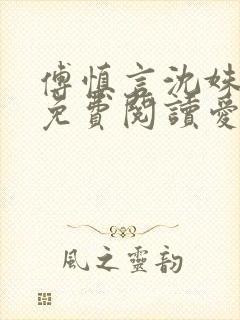 傅慎言沈姝
免費閱讀愛
風之靈韵